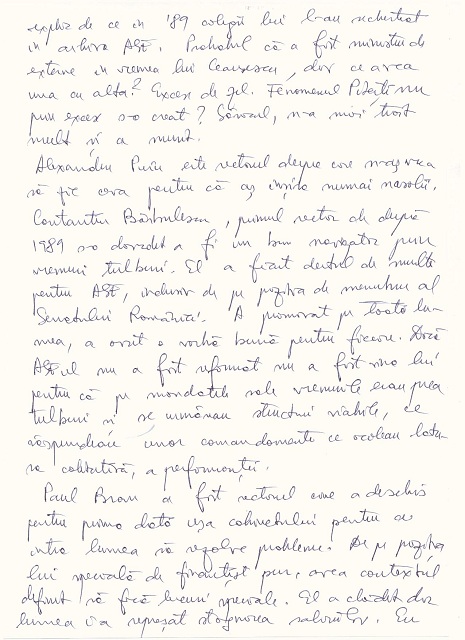 explic de ce in '89 colegii lui l-au sechestrat
in arhiva ASE. Probabil că a fost ministru de
externe in vremea lui Ceausescu, dar ce avea
una cu alta? Exces de zel. Fenomenul Pitești nu
prin exces s-a creat? Săracul, n-a mai trăit
mult și a murit.
Alexandru Puiu este rectorul despre care n-aș vrea
să fie ceva pentru că aș inșira numai nasolii.
Constantin Bărbulescu, primul rector de după
1989 s-a dovedit a fi un bun navigator prin
vremuri tulburi. El a făcut destul de multe
pentru ASE, inclusiv de pe poziția de membru al
Senatului României. A promovat pe toată lu-
mea, a avut o vorbă bună pentru fiecare. Dacă
ASE-ul nu a fost reformat nu a fost vina lui
pentru că pe mandatele sale vremurile erau prea
tulburi și se urmăreau structuri viabile, ce
răspundeau unor comandamente ce ocoleau latu-
ra calitativă, a performanței.
Paul Bran a fost rectorul care a deschis
pentru prima dată ușa cabinetului pentru a
intra lumea să rezolve probleme. De pe poziția
lui specială de finanțist pur, avea contextul
definit să facă lucruri speciale. El a clădit dar
lumea i-a reproșat stagnarea salariilor. Eu